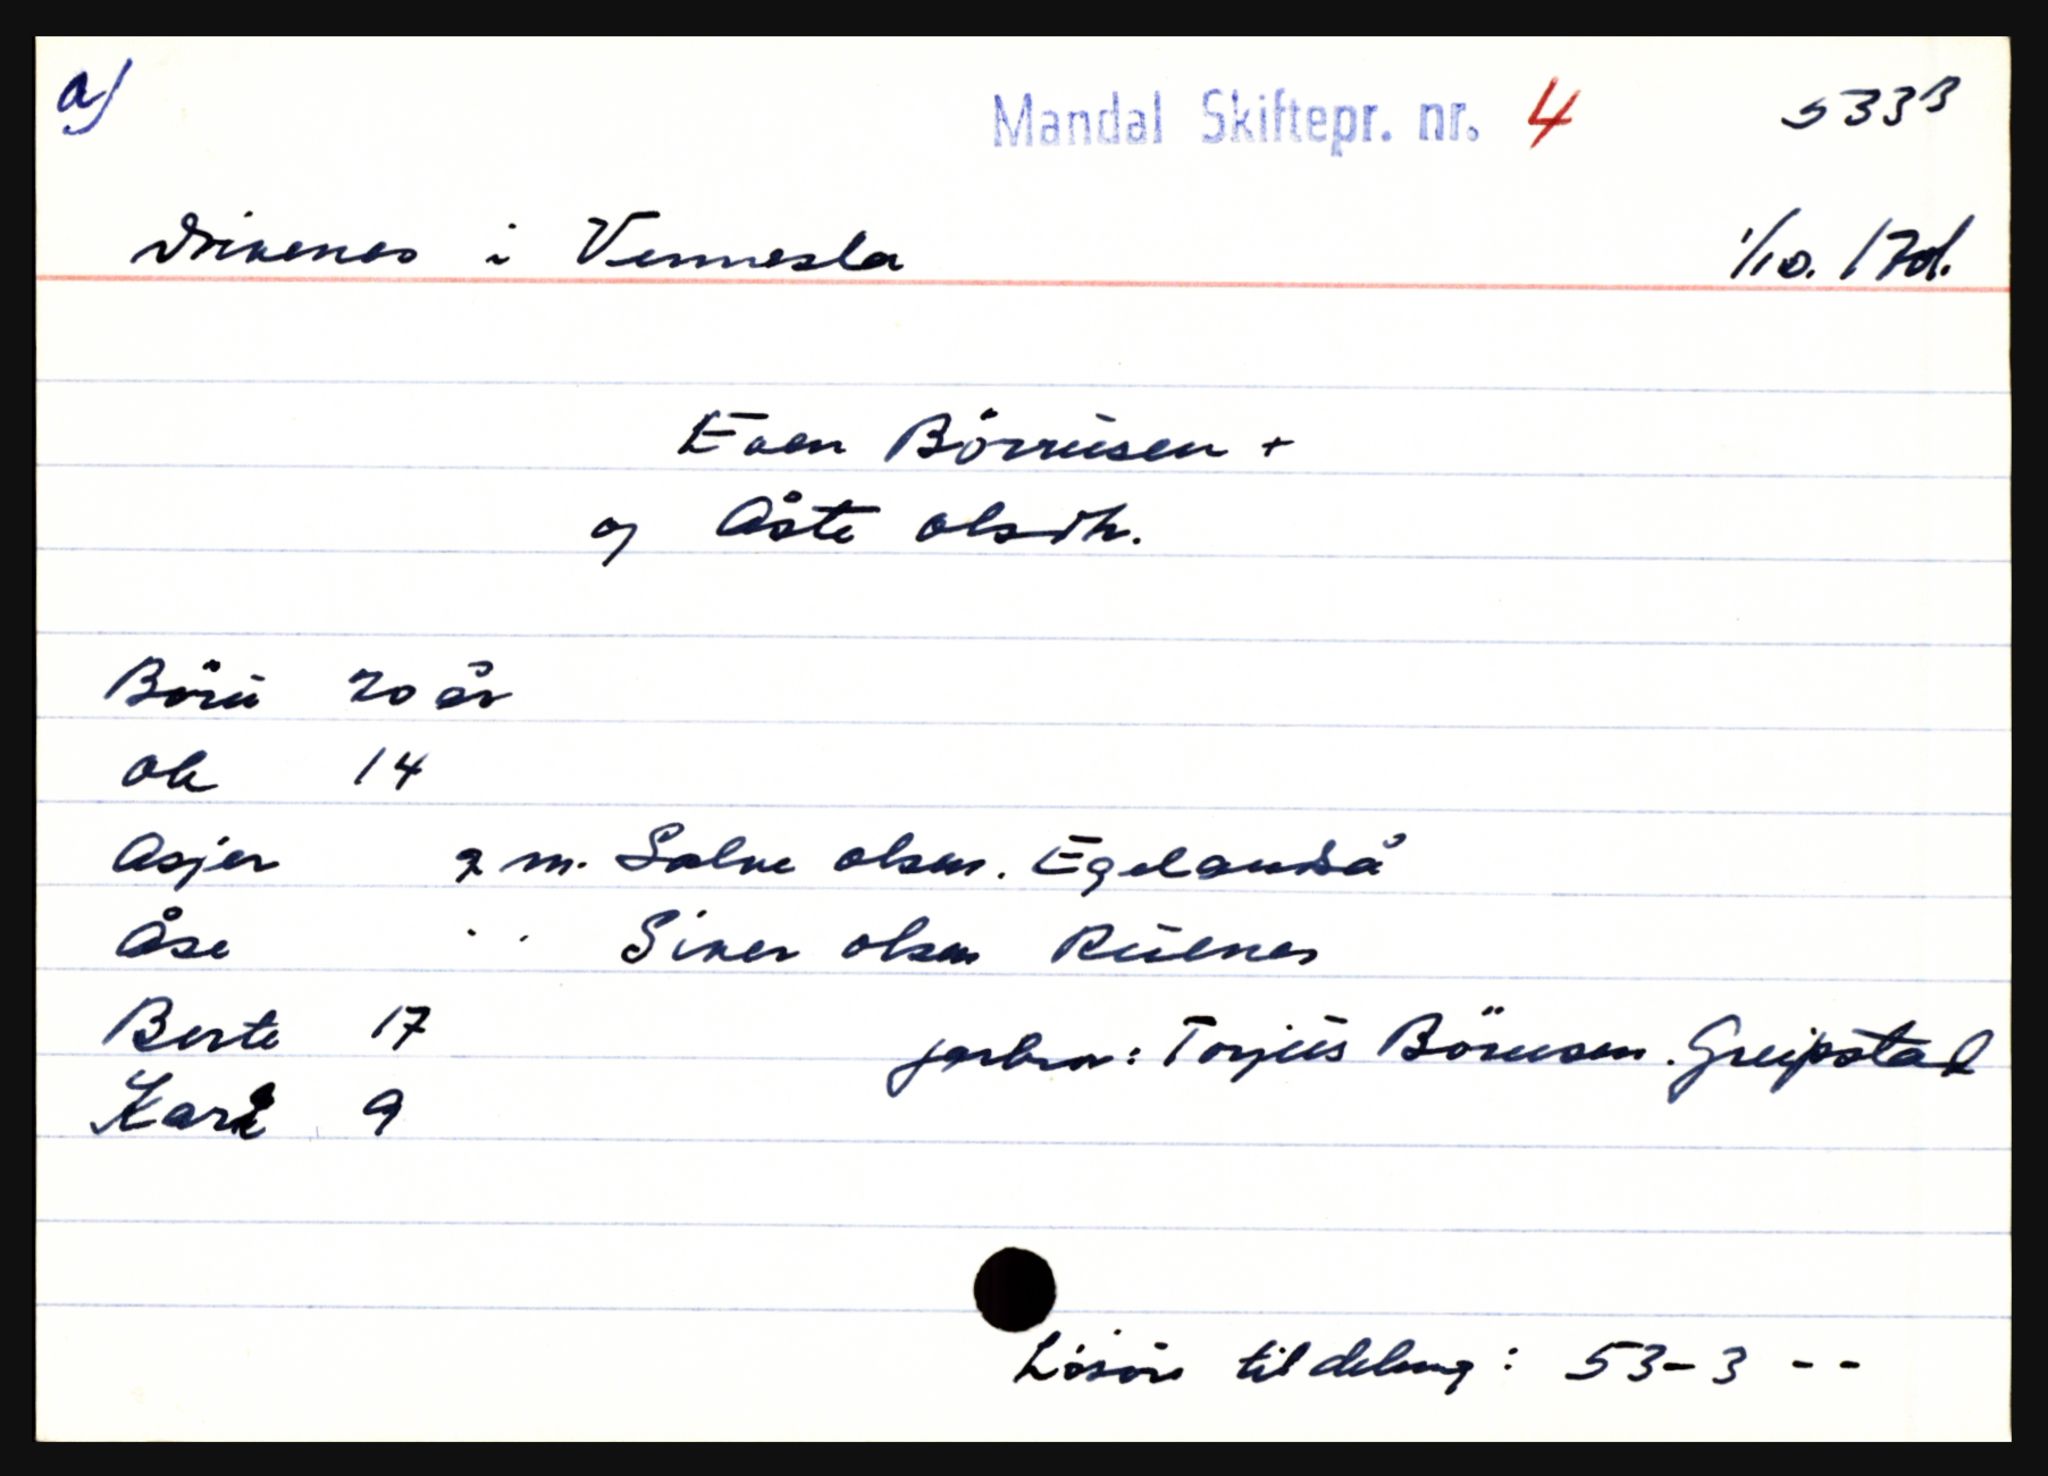 a)
Mandal Skiftepr. nr. 4 533B
Drivenes i Vennesla 1/10. 1701.
Even Börrusen +
og Åste olsdtr.
Böru 20 år
ole 14
Asjer g m. Salve olsen. Egelandså
Åse " " Siver olsen Rusnes
Berte 17
farbror: Torjus Börusen. Greipstad
Kari 9
Lösöre til deling: 53-3 - -